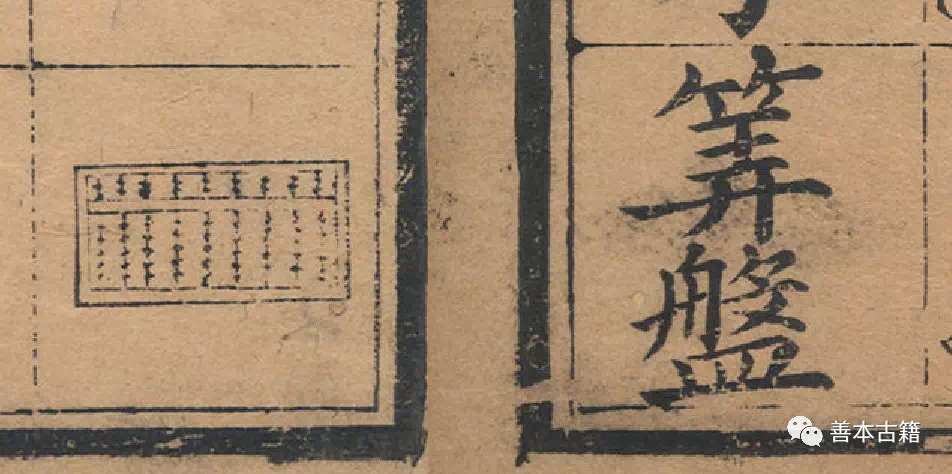 筭盤
善本古籍